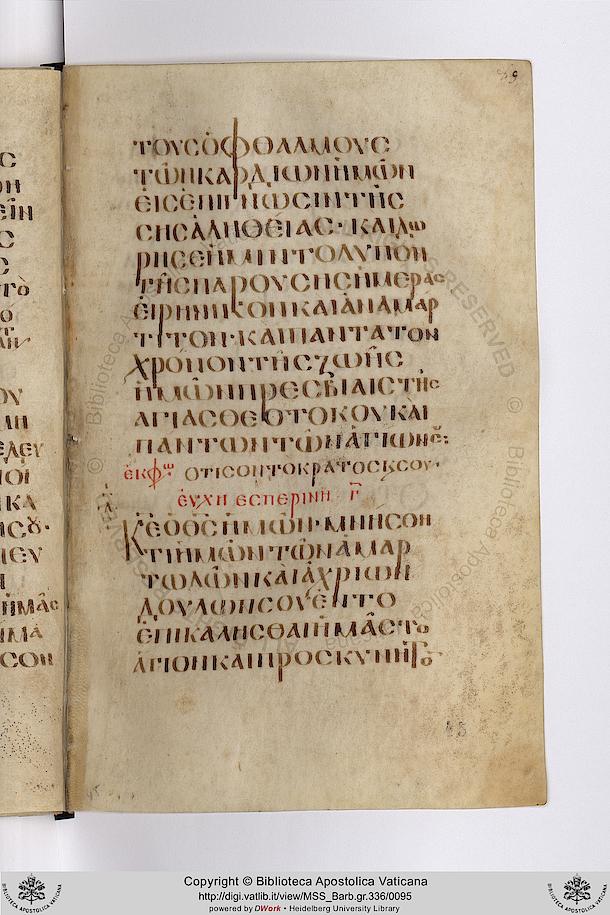 49
ΤΟΥΣ ὈΦΘΑΛΜΟΥΣ
ΤΩΝ ΚΑΡΔΙΩΝ ἩΜΩΝ
ΕΙΣ ΕΠΙΓΝΩΣΙΝ ΤΗΣ
ΣΗΣ ἈΛΗΘΕΊΑΣ· ΚΑΙ ΔΩ
ΡΗΣΕ ἩΜΙΝ ΤΟ ΛΥΠΟΝ
ΤΗΣ ΠΑΡΟΥΣΗΣ ἩΜΕΡΑΣ
ΕἸΡΗΝΙΚΟΝ ΚΑΙ ἈΝΑΜΑΡ
ΤΙΤΟΝ· ΚΑΙ ΠΑΝΤΑ ΤΟΝ
ΧΡΟΝΟΝ ΤΗΣ ΖΩΗΣ
ἩΜΩΝ ΠΡΕΣΒΙΑΙΣ ΤΗΣ
ΑΓΙΑΣ ΘΕΟΤΟΚΟΥ ΚΑΙ
ΠΑΝΤΩΝ ΤΩΝ ΑΓΙΩΝ Σ:
ἐκφω ΟΤΙ ΣΟΝ ΤΟ ΚΡΑΤΟΣ Κ ΣΟΥ·
ΕΥΧΗ ΕΣΠΕΡΙΝΗ Γ
ΚΕ Ο ΘΣ ἩΜΩΝ· ΜΝΗΣΘΗ
ΤΙ ἩΜΩΝ ΤΩΝ ἉΜΑΡ
ΤΩΛΩΝ ΚΑΙ ἈΧΡΙΩΝ
ΔΟΥΛΩΝ ΣΟΥ ἘΝ ΤΟ
ἘΠΙΚΑΛΗΣΘΑΙ ἩΜΑΣ ΤΟ
ΑΓΙΟΝ ΚΑΙ ΠΡΟΣΚΥΝΗΤΟ
Copyright © Biblioteca Apostolica Vaticana
http://digi.vatlib.it/view/MSS_Barb.gr.336/0095
powered by DWork • Heidelberg University Library